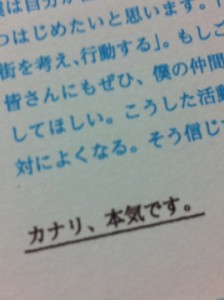 僕は自分が
つはじめたいと思います。「
街を考え、行動する」。もしこ
皆さんにもぜひ、僕の仲間
してほしい。こうした活動
対によくなる。そう信じ
カナリ、本気です。